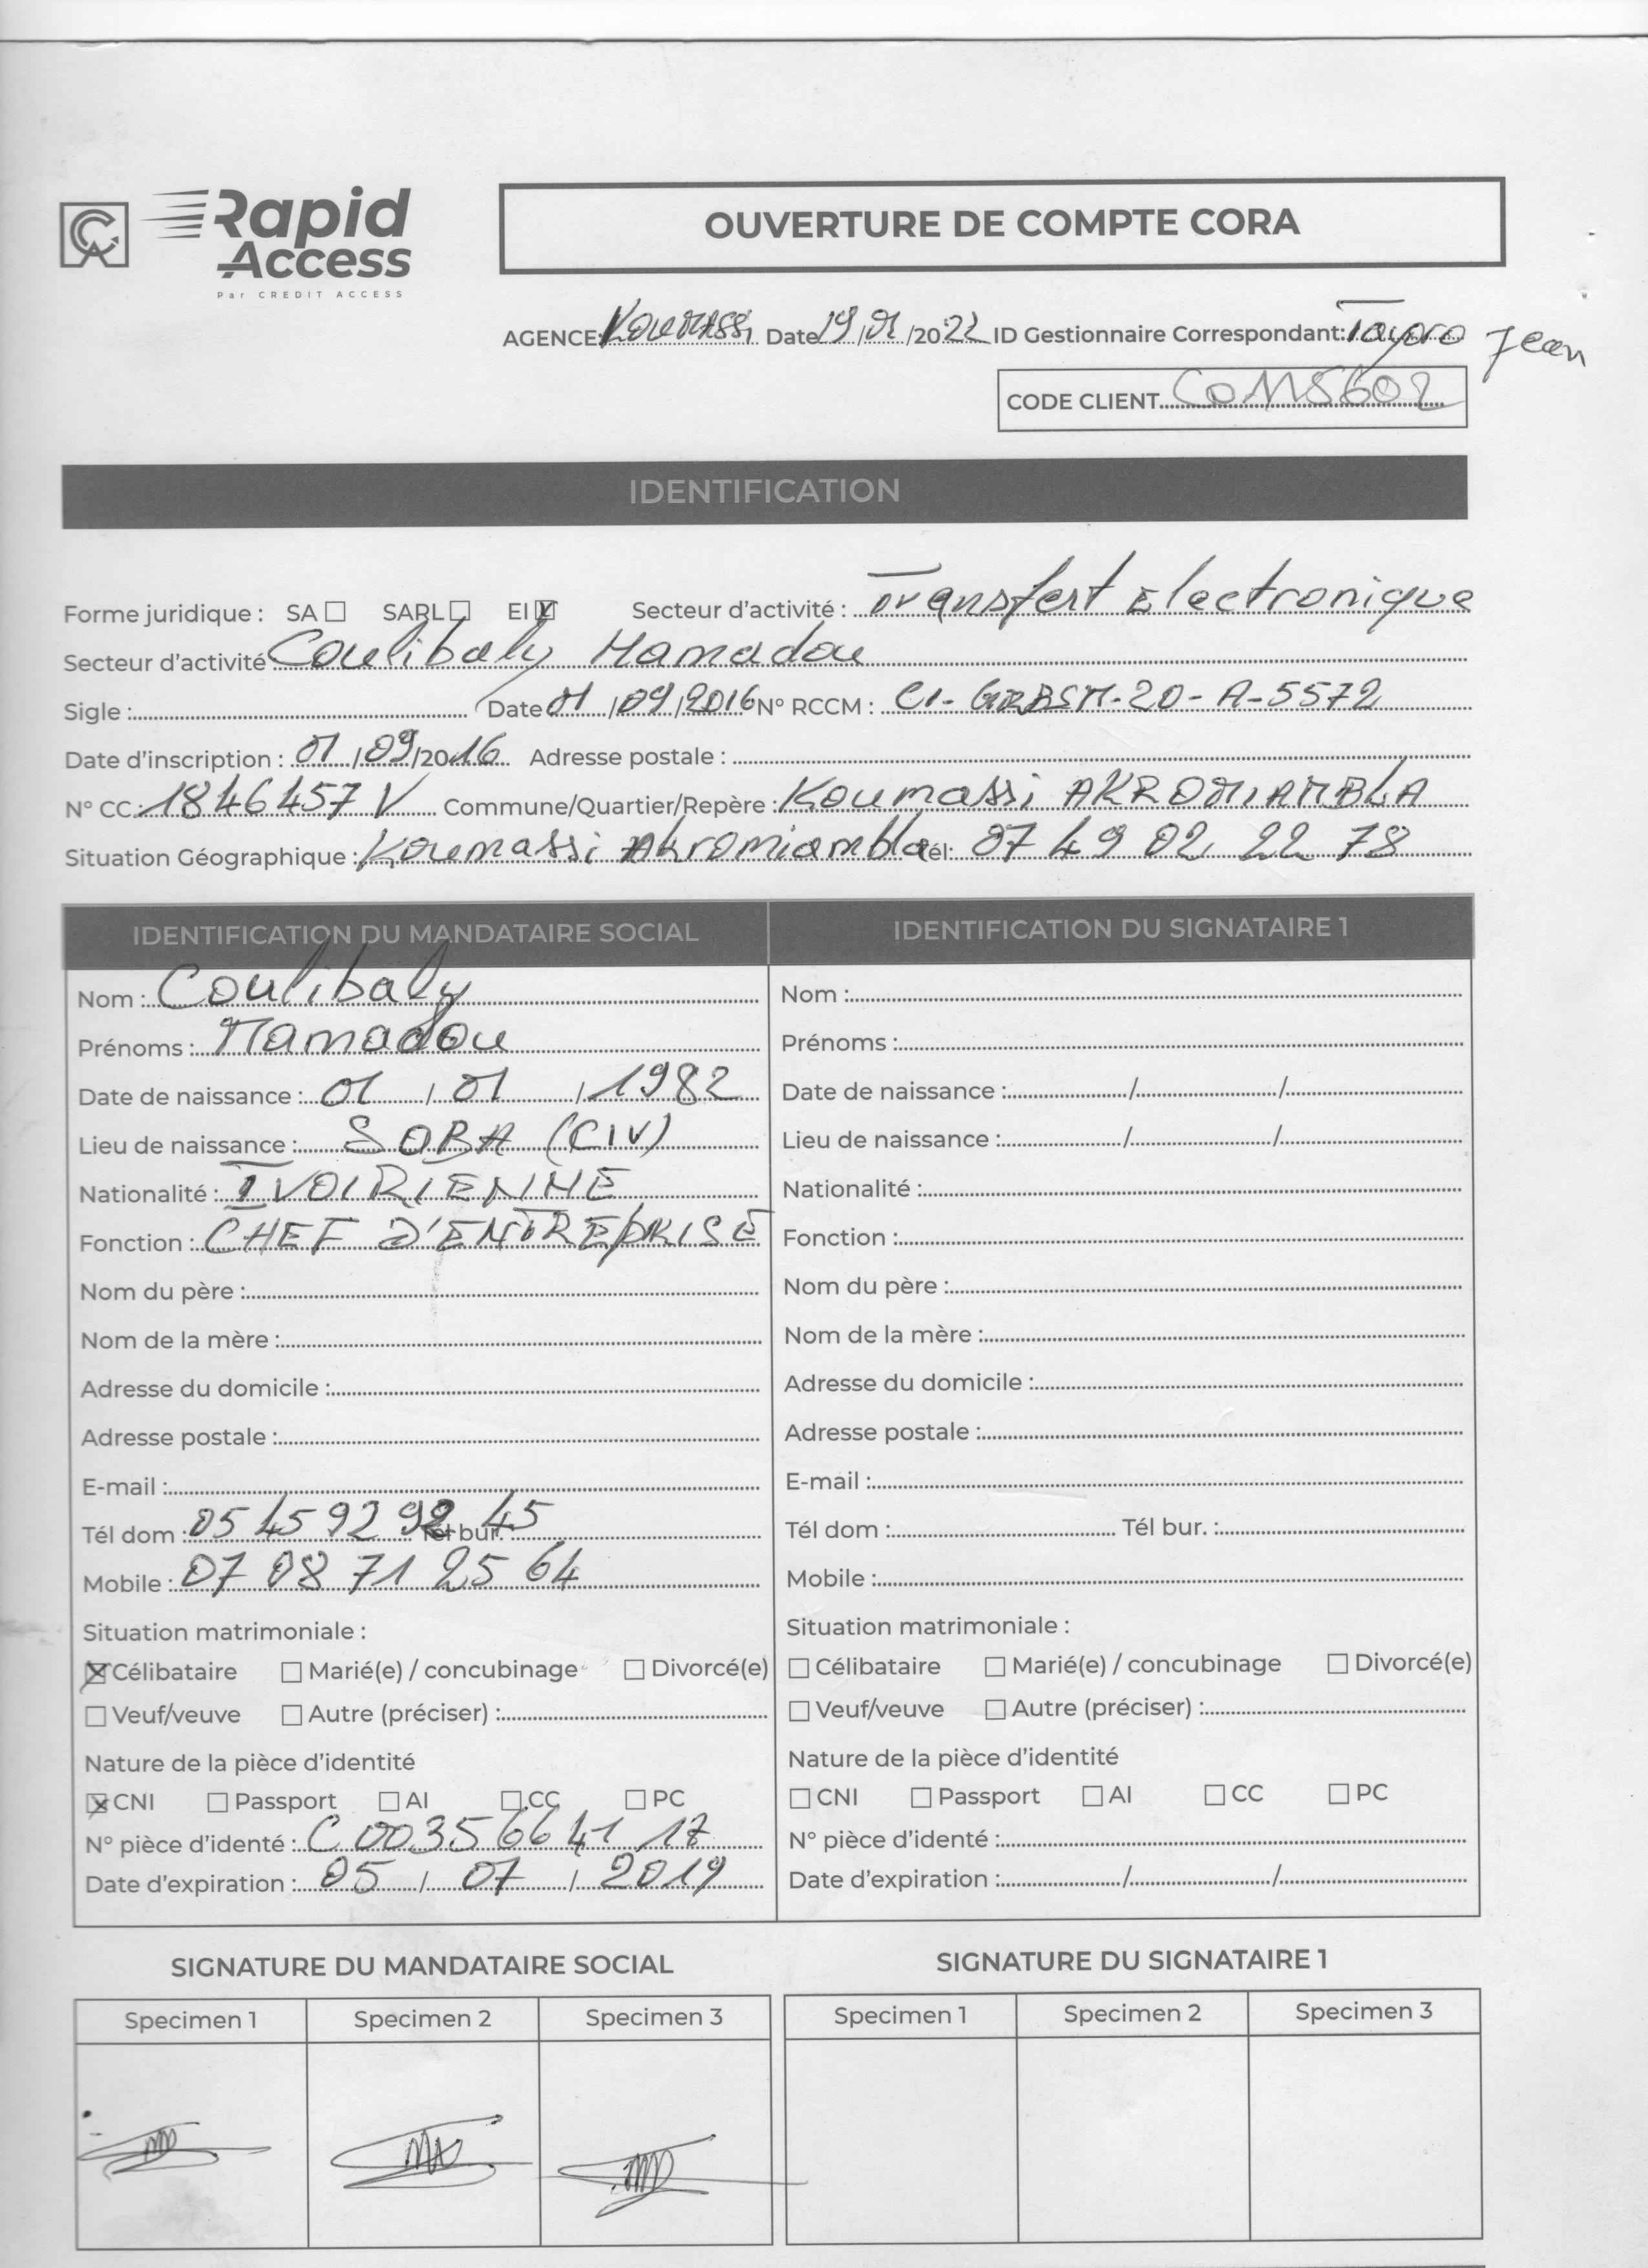 Rapid
Access
Par CREDIT ACCESS
OUVERTURE DE COMPTE CORA
AGENCE: Koumassi Date 19/01/2022 ID Gestionnaire Correspondant: Tayoro Jean
CODE CLIENT Co115602
IDENTIFICATION
Forme juridique : SA ☐ SARL ☐ EI ☒ Secteur d'activité : Transfert Electronique
Secteur d'activité Coulibaly Mamadou
Sigle : Date 01/09/2016 N° RCCM : CI-GRBSM-20-A-5572
Date d'inscription : 01/09/2016 Adresse postale :
N° CC: 1846457 V Commune/Quartier/Repère : Koumassi AKROMIAMBLA
Situation Géographique : Koumassi Akromiambla Tél: 07 49 02 22 78
IDENTIFICATION DU MANDATAIRE SOCIAL
Nom : Coulibaly
Prénoms : Mamadou
Date de naissance : 01 / 01 / 1982
Lieu de naissance : SOBA (CIV)
Nationalité : IVOIRIENNE
Fonction : CHEF D'ENTREPRISE
Nom du père :
Nom de la mère :
Adresse du domicile :
Adresse postale :
E-mail :
Tél dom : 05 45 92 92 45 Tél bur. :
Mobile : 07 08 71 25 64
Situation matrimoniale :
☒ Célibataire ☐ Marié(e) / concubinage ☐ Divorcé(e)
☐ Veuf/veuve ☐ Autre (préciser) :
Nature de la pièce d'identité
☒ CNI ☐ Passport ☐ AI ☐ CC ☐ PC
N° pièce d'identé : C 0035664117
Date d'expiration : 05 / 07 / 2019
IDENTIFICATION DU SIGNATAIRE 1
Nom :
Prénoms :
Date de naissance : / /
Lieu de naissance : / /
Nationalité :
Fonction :
Nom du père :
Nom de la mère :
Adresse du domicile :
Adresse postale :
E-mail :
Tél dom : Tél bur. :
Mobile :
Situation matrimoniale :
☐ Célibataire ☐ Marié(e) / concubinage ☐ Divorcé(e)
☐ Veuf/veuve ☐ Autre (préciser) :
Nature de la pièce d'identité
☐ CNI ☐ Passport ☐ AI ☐ CC ☐ PC
N° pièce d'identé :
Date d'expiration : / /
SIGNATURE DU MANDATAIRE SOCIAL
Specimen 1 Specimen 2 Specimen 3
SIGNATURE DU SIGNATAIRE 1
Specimen 1 Specimen 2 Specimen 3